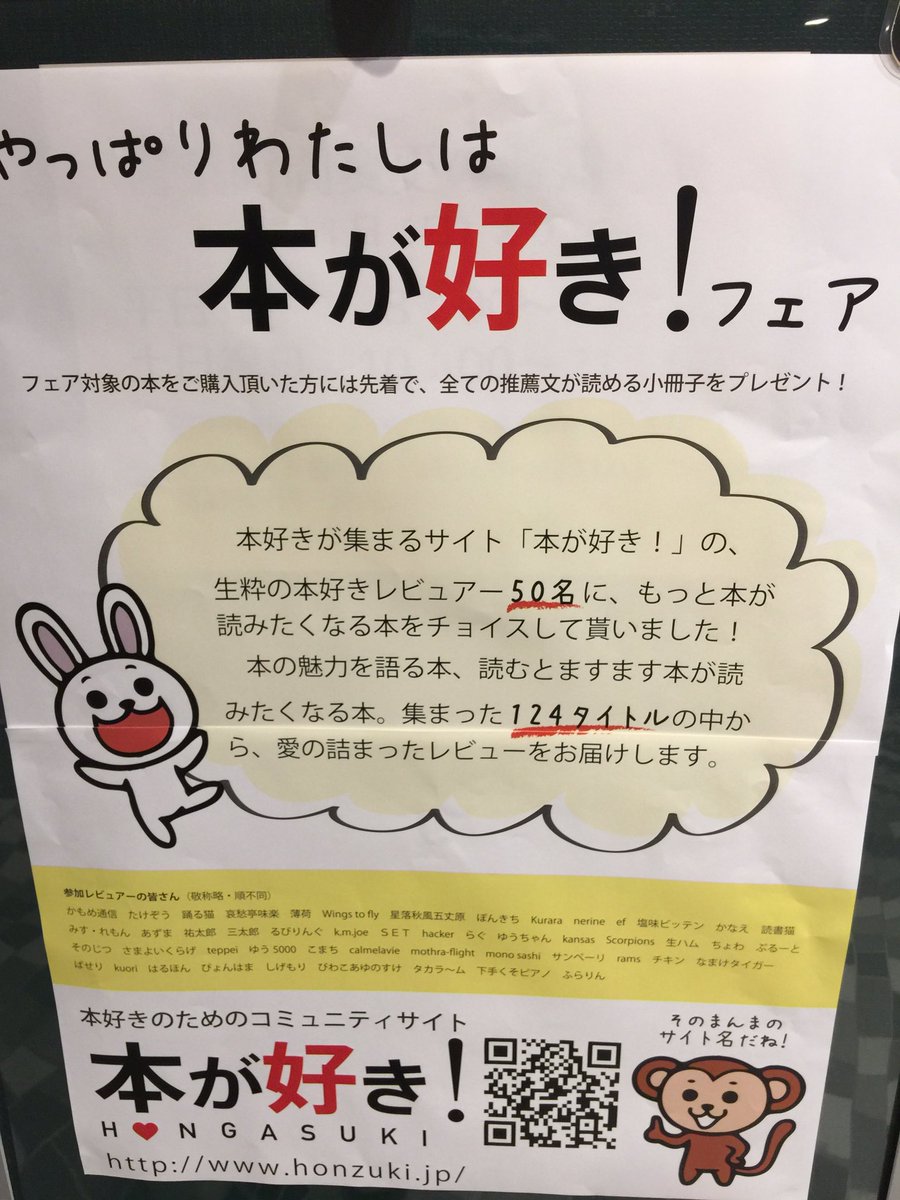 やっぱりわたしは
本が好き!フェア
フェア対象の本をご購入頂いた方には先着で、全ての推薦文が読める小冊子をプレゼント！
本好きが集まるサイト「本が好き！」の、
生粋の本好きレビュアー50名に、もっと本が
読みたくなる本をチョイスして貰いました！
本の魅力を語る本、読むとますます本が読
みたくなる本。集まった124タイトルの中か
ら、愛の詰まったレビューをお届けします。
参加レビュアーの皆さん（敬称略・順不同）
かもめ通信 たけぞう 踊る猫 哀愁亭味楽 薄荷 Wings to fly 星落秋風五丈原 ぽんきち Kurara nerine ef 塩味ビッテン かなえ 読書猫
みす・れもん あずま 祐太郎 三太郎 るびりんぐ k.m.joe SET hacker らぐ ゆうちゃん kansas Scorpions 生ハム ちょわ ぷるーと
そのじつ さまよいくらげ teppei ゆう5000 こまち calmelavie mothra-flight mono sashi サンペーリ rams チキン なまけタイガー
ぱせり kuori はるほん ぴょんはま しげもり びわこあゆのすけ タカラ〜ム 下手くそピアノ ふらりん
本好きのためのコミュニティサイト
本が好き!
H♥NGASUKI
http://www.honzuki.jp/
そのまんまの
サイト名だね!